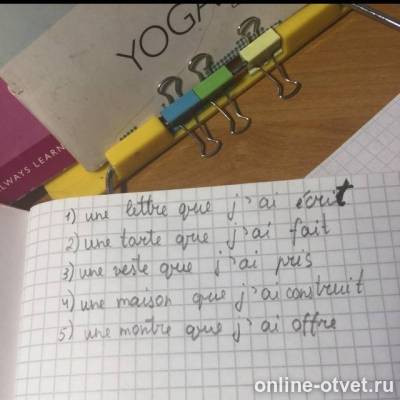 YOGA
ALWAYS LEARN
1) une lettre que j'ai écrit
2) une tarte que j'ai fait
3) une veste que j'ai pris
4) une maison que j'ai construit
5) une montre que j'ai offre
online-otvet.ru